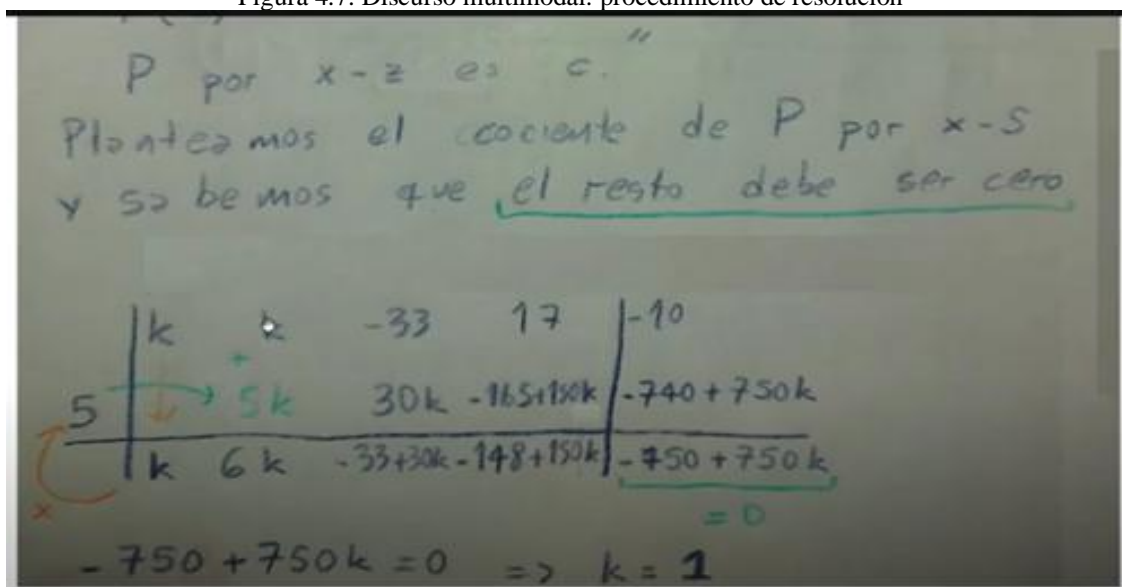 Figura 4.7. Discurso multimodal: procedimiento de resolución
P por x-z es c."
Planteamos el cociente de P por x-5
y sabemos que el resto debe ser cero
k k -33 17 -10
+
5 5k 30k -165+150k -740+750k
k 6k -33+30k -148+150k -750+750k
x
= 0
-750+750k=0 => k = 1